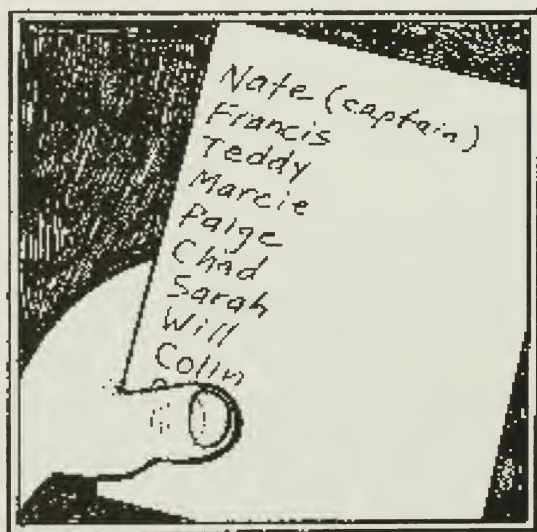 Nate (captain)
Francis
Teddy
Marcie
Paige
Chad
Sarah
Will
Colin